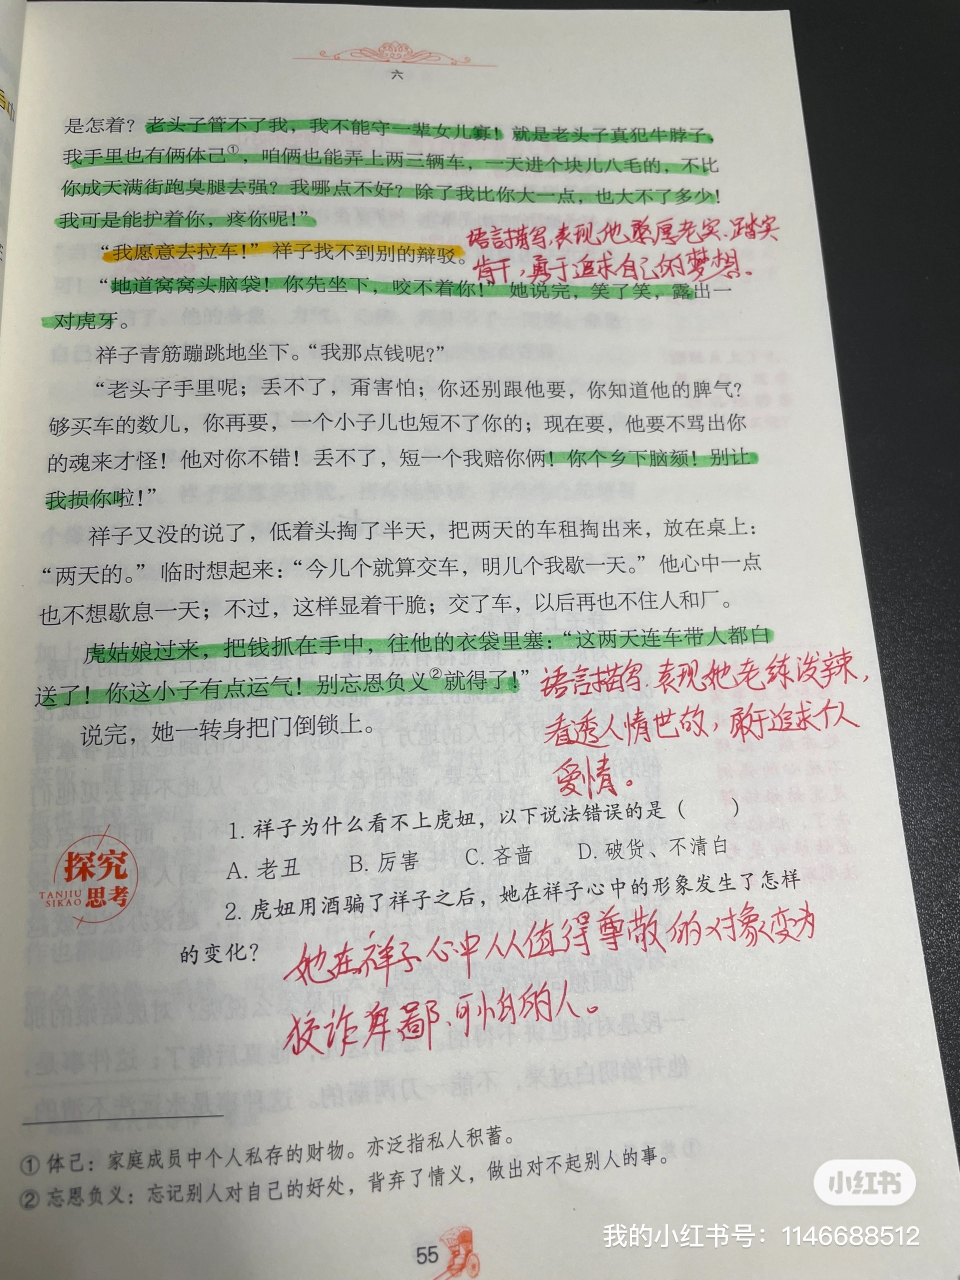 六
是怎着？老头子管不了我，我不能守一辈女儿寡！就是老头子真犯牛脖子，
我手里也有俩体己①，咱俩也能弄上两三辆车，一天进个块儿八毛的，不比
你成天满街跑臭腿去强？我哪点不好？除了我比你大一点，也大不了多少！
我可是能护着你，疼你呢！”
“我愿意去拉车！” 祥子找不到别的辩驳。
语言描写，表现他憨厚老实、踏实
肯干，勇于追求自己的梦想。
“地道窝窝头脑袋！你先坐下，咬不着你！” 她说完，笑了笑，露出一
对虎牙。
祥子青筋蹦跳地坐下。“我那点钱呢？”
“老头子手里呢；丢不了，甭害怕；你还别跟他要，你知道他的脾气？
够买车的数儿，你再要，一个小子儿也短不了你的；现在要，他要不骂出你
的魂来才怪！他对你不错！丢不了，短一个我赔你俩！你个乡下脑颏！别让
我损你啦！”
祥子又没的说了，低着头掏了半天，把两天的车租掏出来，放在桌上：
“两天的。” 临时想起来：“今儿个就算交车，明儿个我歇一天。” 他心中一点
也不想歇息一天；不过，这样显着干脆；交了车，以后再也不住人和厂。
虎姑娘过来，把钱抓在手中，往他的衣袋里塞：“这两天连车带人都白
送了！你这小子有点运气！别忘恩负义②就得了！”
语言描写，表现她老练泼辣，
看透人情世故，敢于追求个人
爱情。
说完，她一转身把门倒锁上。
探究
TANJIU
SIKAO
思考
1. 祥子为什么看不上虎妞，以下说法错误的是（ ）
A. 老丑 B. 厉害 C. 吝啬 D. 破货、不清白
2. 虎妞用酒骗了祥子之后，她在祥子心中的形象发生了怎样
的变化？
她在祥子心中从值得尊敬的对象变为
狡诈卑鄙、可怕的人。
① 体己：家庭成员中个人私存的财物。亦泛指私人积蓄。
② 忘恩负义：忘记别人对自己的好处，背弃了情义，做出对不起别人的事。
55
小红书
我的小红书号：1146688512